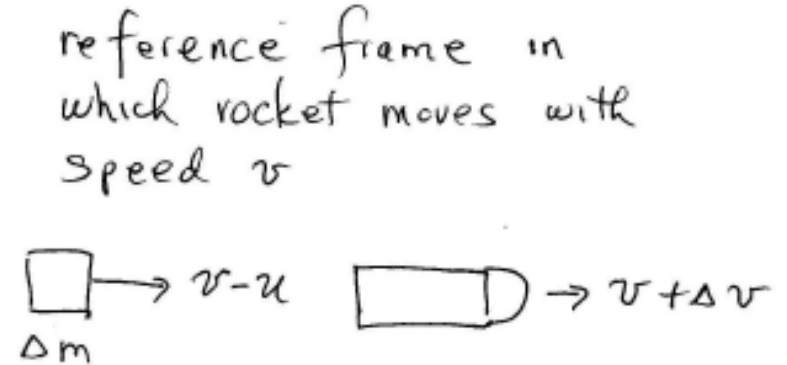 reference frame in
which rocket moves with
speed v
v-u
v+Δv
Δm